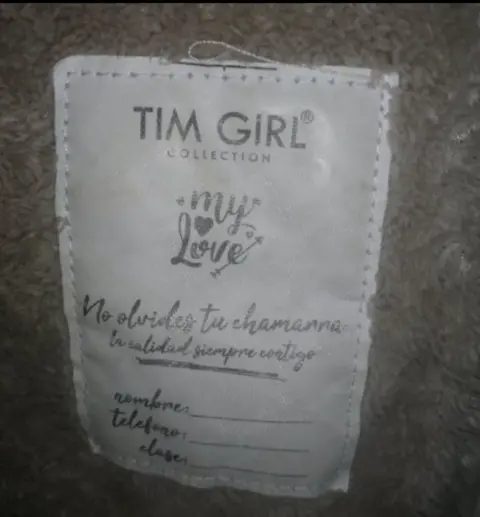 TIM GIRL®
COLLECTION
my
Love
No olvides tu chamarra
la calidad siempre contigo
nombre:
telefono:
clase: